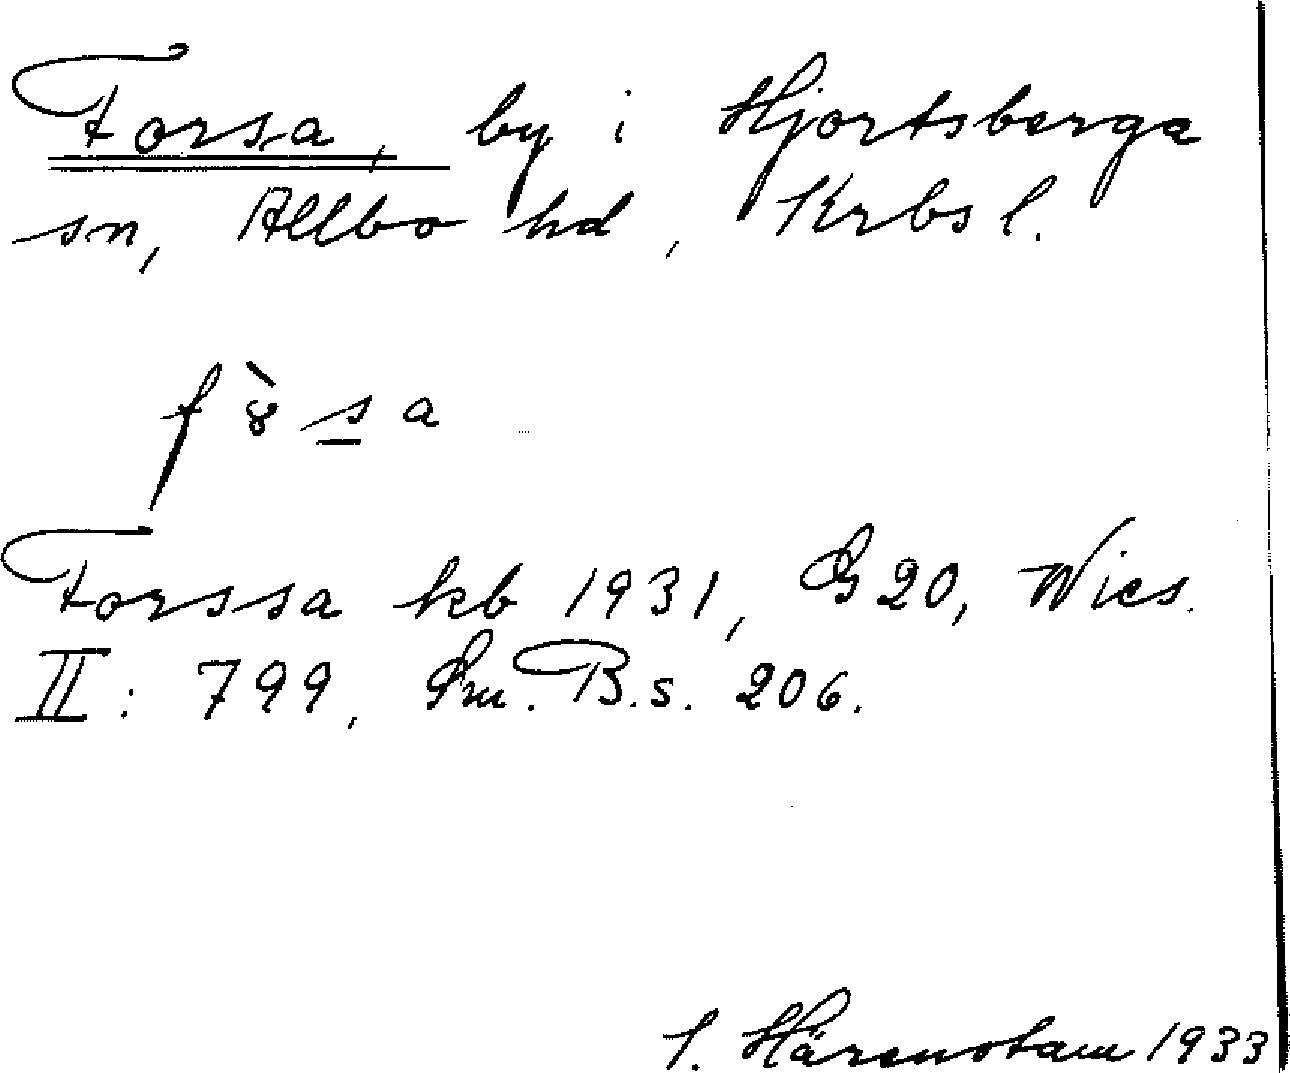 Forsa, by i Hjortsberga
sn, Allbo hd, Krbs l.
fɤ̀sa
Forssa kb 1931, G 20, Wies.
II: 799, Sm. B. s. 206.
S. Härenstam 1933